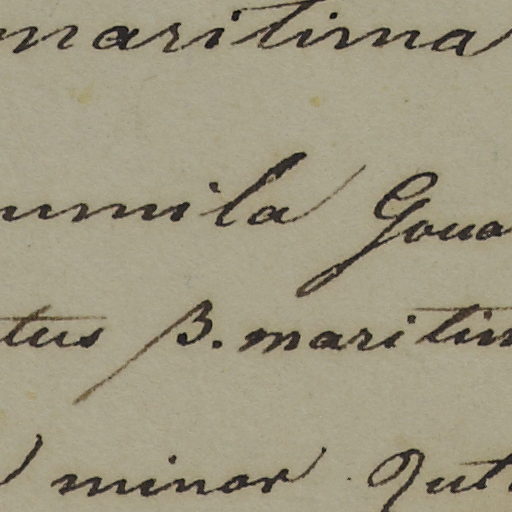 maritima
umila Goua
tus β. maritim
minor